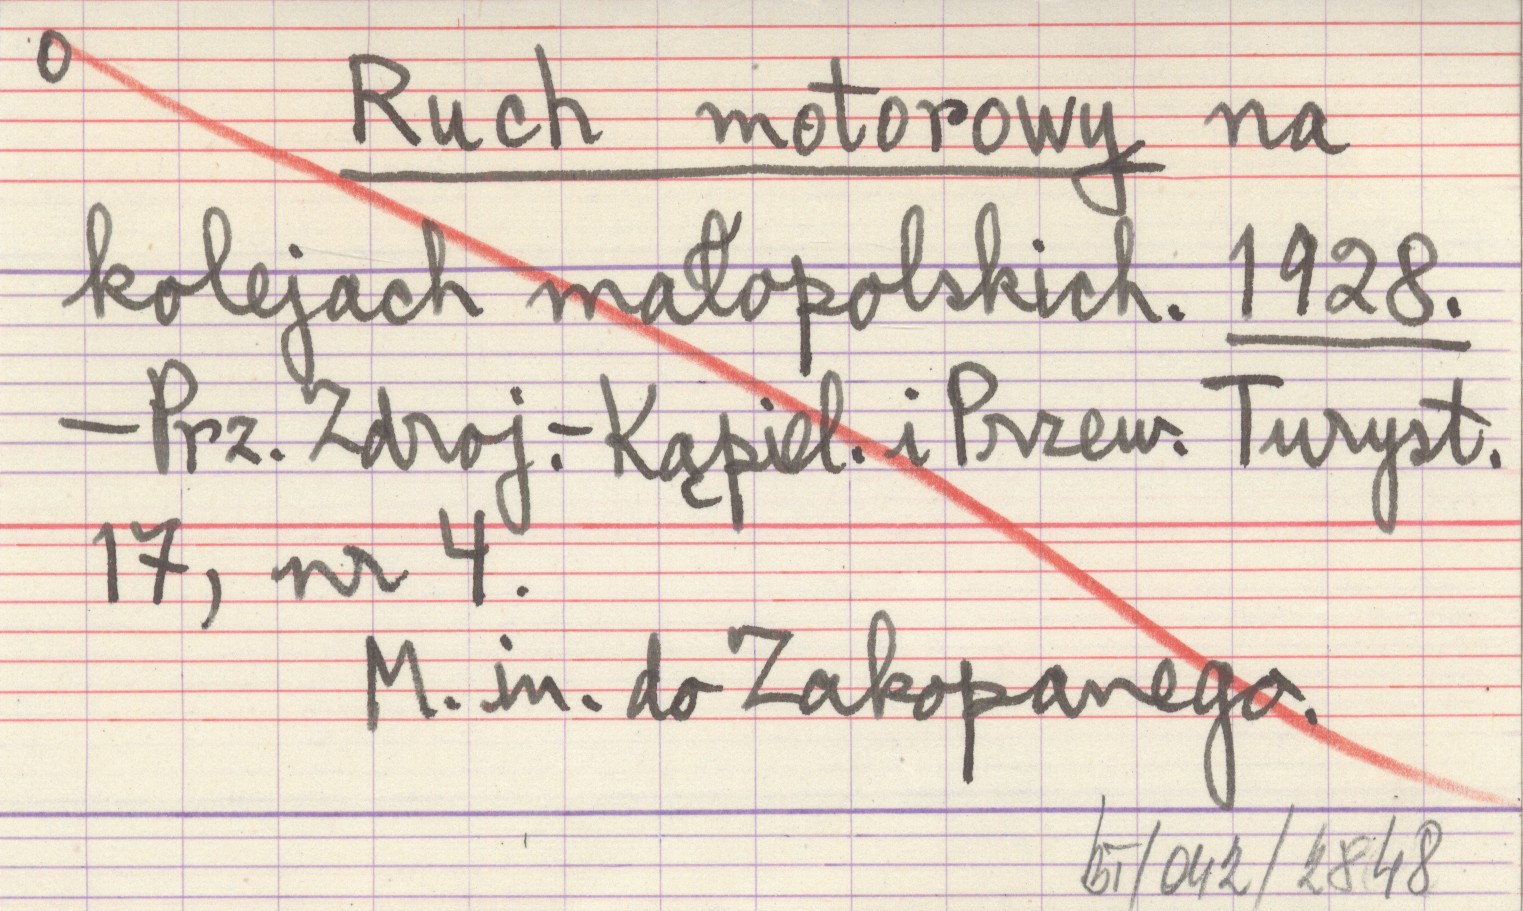 0
Ruch motorowy na
kolejach małopolskich. 1928.
– Prz. Zdroj.-Kąpiel. i Przew. Turyst.
17, nr 4.
M. in. do Zakopanego.
/042/2848